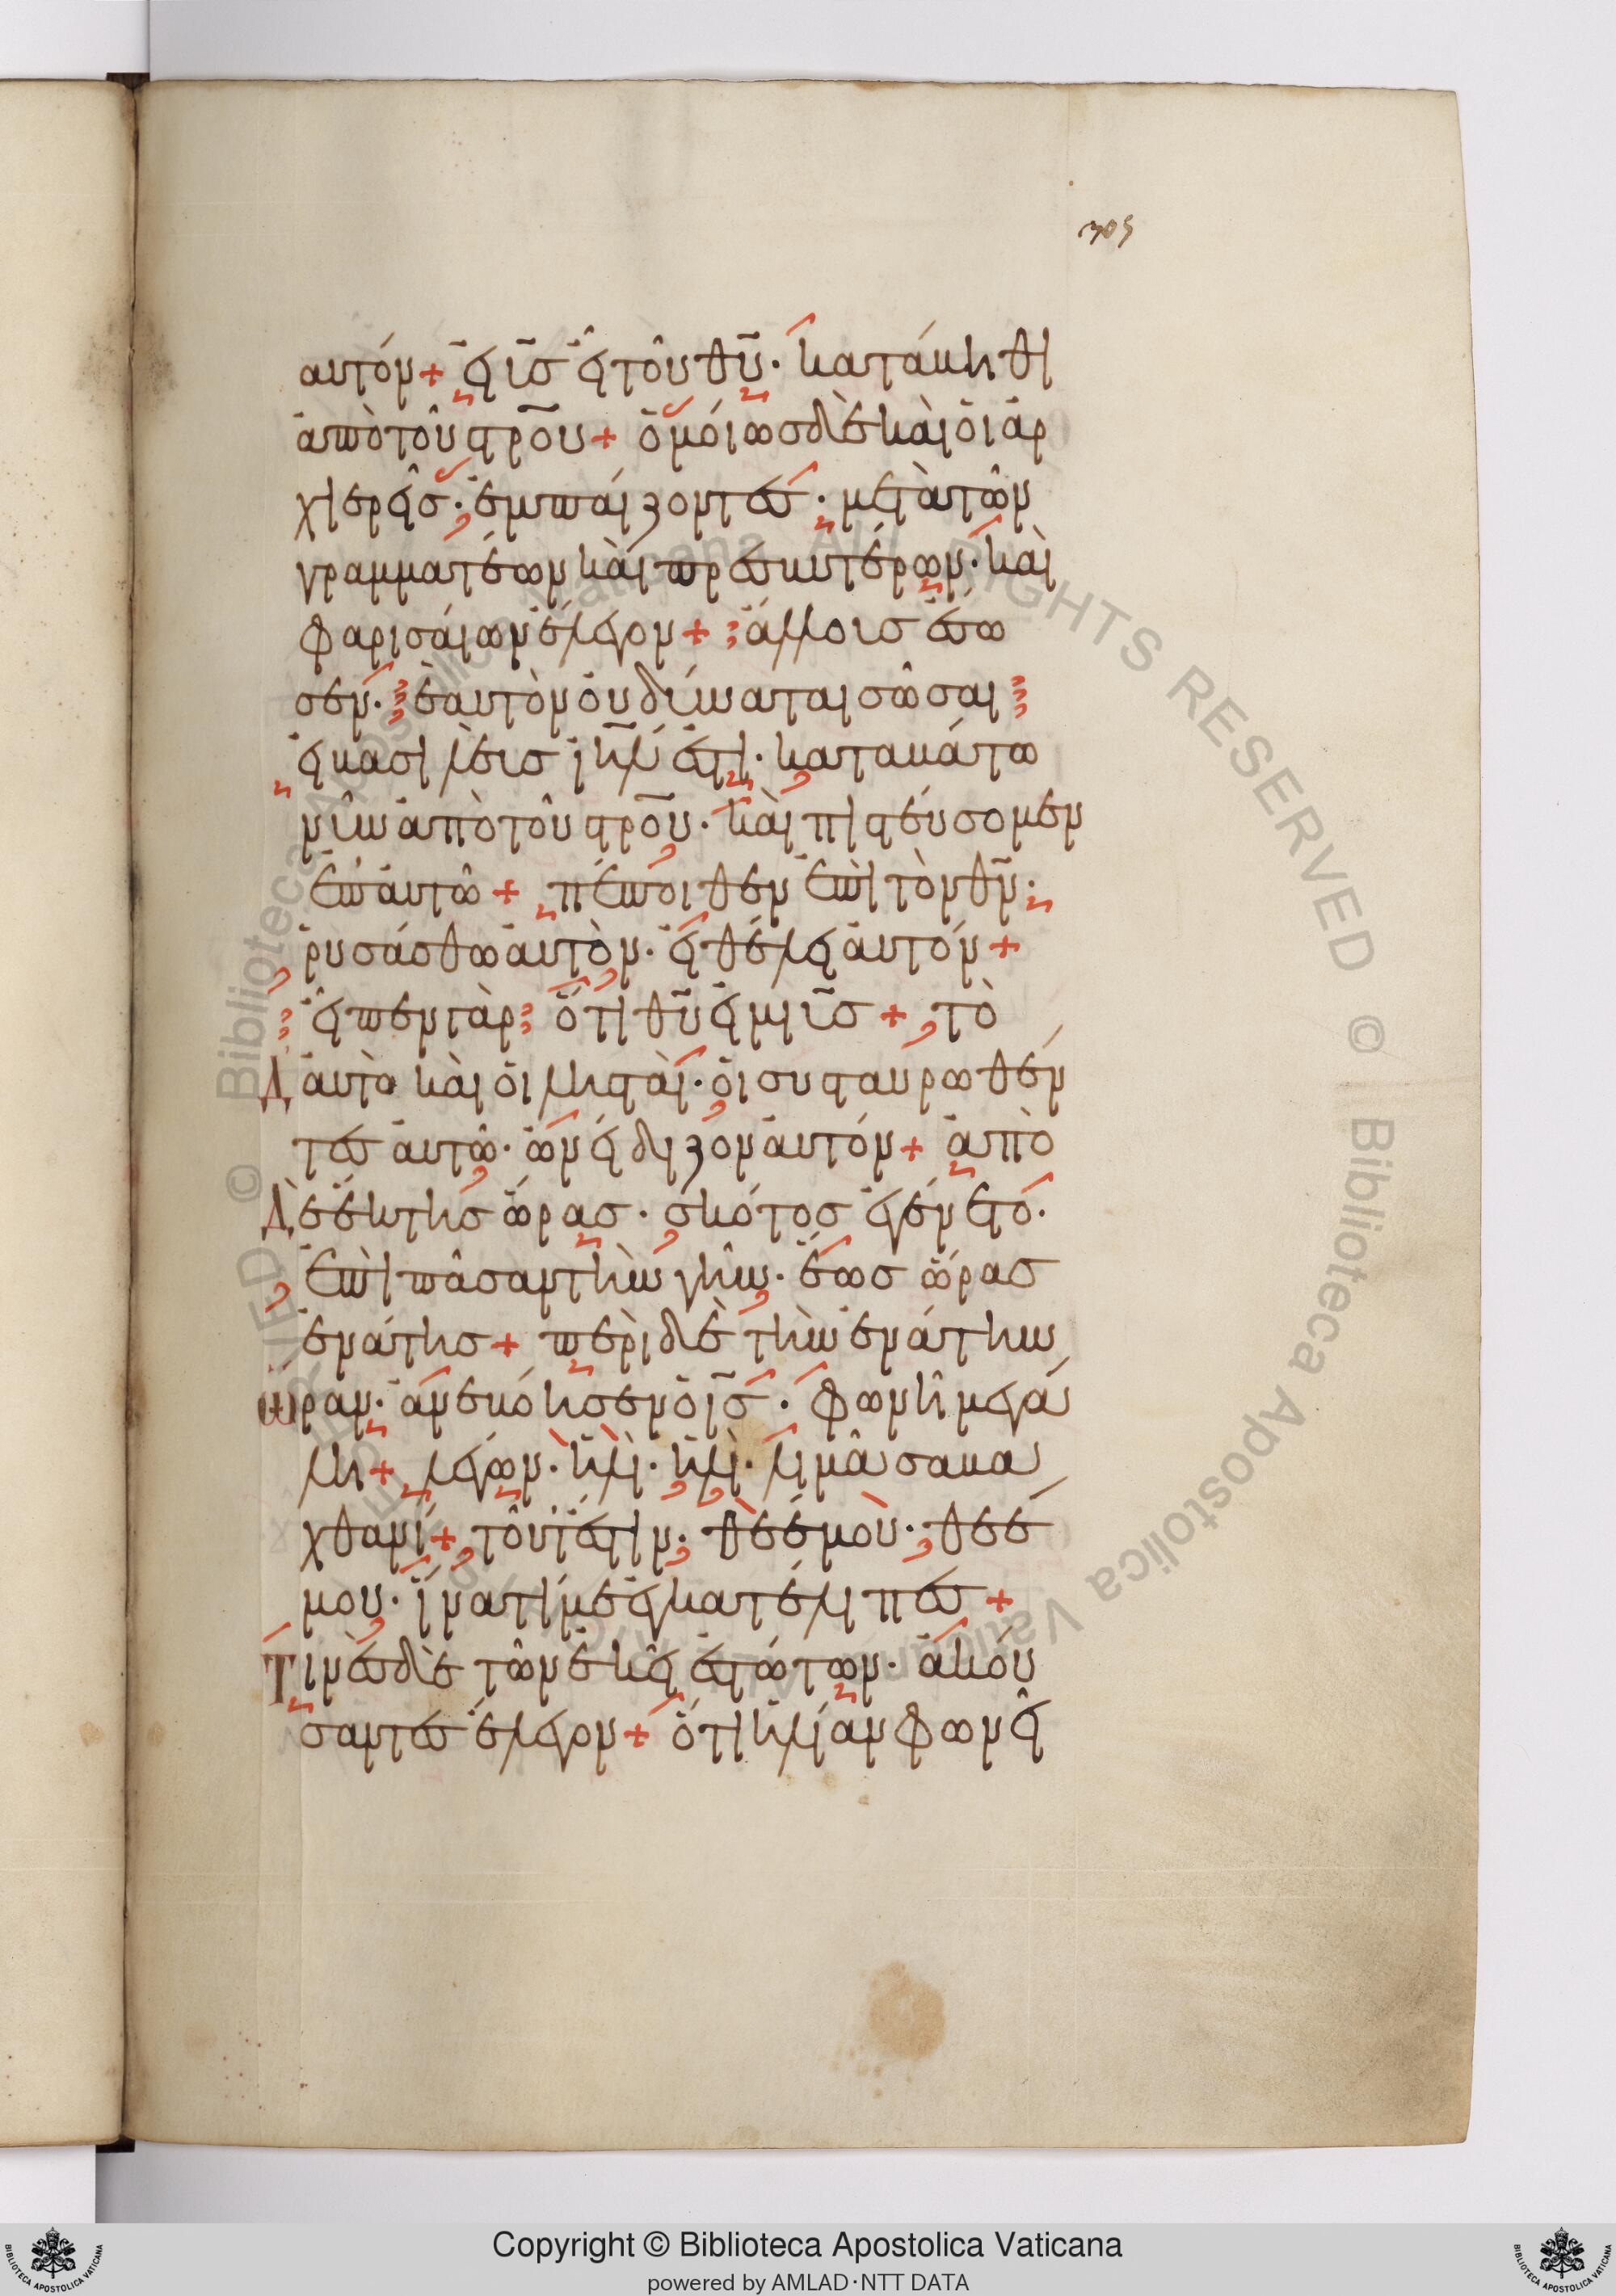 305
αυτόν + εἰ υ̅ς̅ εἶ τοῦ θ̅υ̅· κατάβηθι
ἀπὸ τοῦ στρ̅ου + ὁμοίως δὲ καὶ οἱ ἀρ
χιερεῖς· ἐμπαίζοντες· μετὰ τῶν
γραμματέων καὶ πρεσβυτέρων· καὶ
φαρισαίων ἔλεγον + ἄλλους ἔσω
σεν· ἑαυτὸν οὐ δύναται σῶσαι
εἰ βασιλεὺς ἰ̅η̅λ̅ ἐστι· καταβάτω
νῦν ἀπὸ τοῦ στρ̅ου· καὶ πιστεύσομεν
ἐπ' αὐτῶ + πέποιθεν ἐπὶ τὸν θ̅ν̅·
ῥυσάσθω αὐτὸν· εἰ θέλει αὐτόν +
εἶπεν γὰρ ὅτι θ̅υ̅ εἰμι υ̅ς̅ + τὸ
Δ αὐτὸ καὶ οἱ λησταὶ· οἱ συσταυρωθέν
τες αὐτῶ· ὠνείδιζον αὐτόν + ἀπὸ
Δὲ ἕκτης ὥρας· σκότος ἐγένετο·
ἐπὶ πᾶσαν τὴν γῆν· ἕως ὥρας
ἐνάτης + περὶ δὲ τὴν ἐνάτην
ὥραν· ἀνεβόησεν ὁ ι̅ς̅· φωνῆ μεγά
λη + λέγων· ἠλὶ· ἠλὶ· λιμᾶ σαβα
χθανί + τοῦτ' ἔστιν· θεέ μου· θεέ
μου· ἵνα τί με ἐγκατέλιπες +
Τινὲς δὲ τῶν ἐκεῖ ἑστώτων· ἀκού
σαντες ἔλεγον + ὅτι ἠλίαν φωνεῖ
© Biblioteca Apostolica Vaticana ALL RIGHTS RESERVED © Biblioteca Apostolica Vaticana
Copyright © Biblioteca Apostolica Vaticana
powered by AMLAD·NTT DATA
BIBLIOTECA APOSTOLICA VATICANA
BIBLIOTECA APOSTOLICA VATICANA